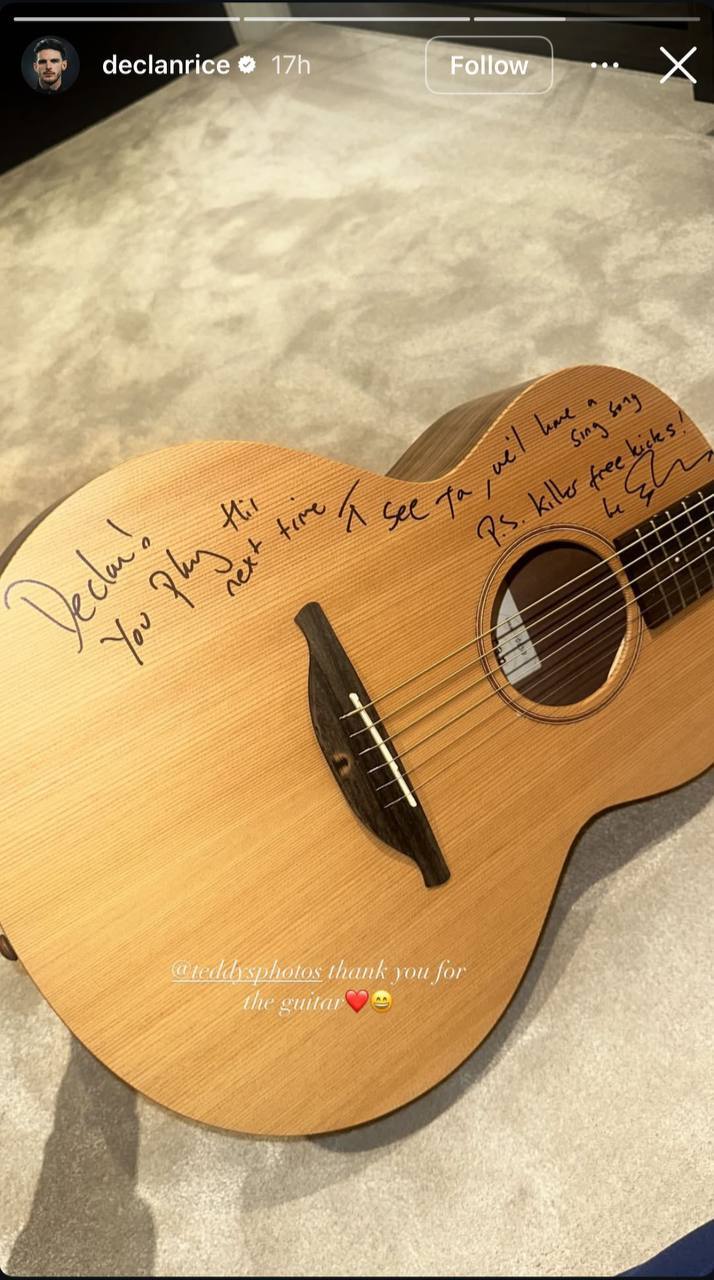 declanrice 17h Follow
Declan!
You play this
next time I see ya, we'll have a
sing song
P.S. killer free kicks!
@teddysphotos thank you for
the guitar❤️😄